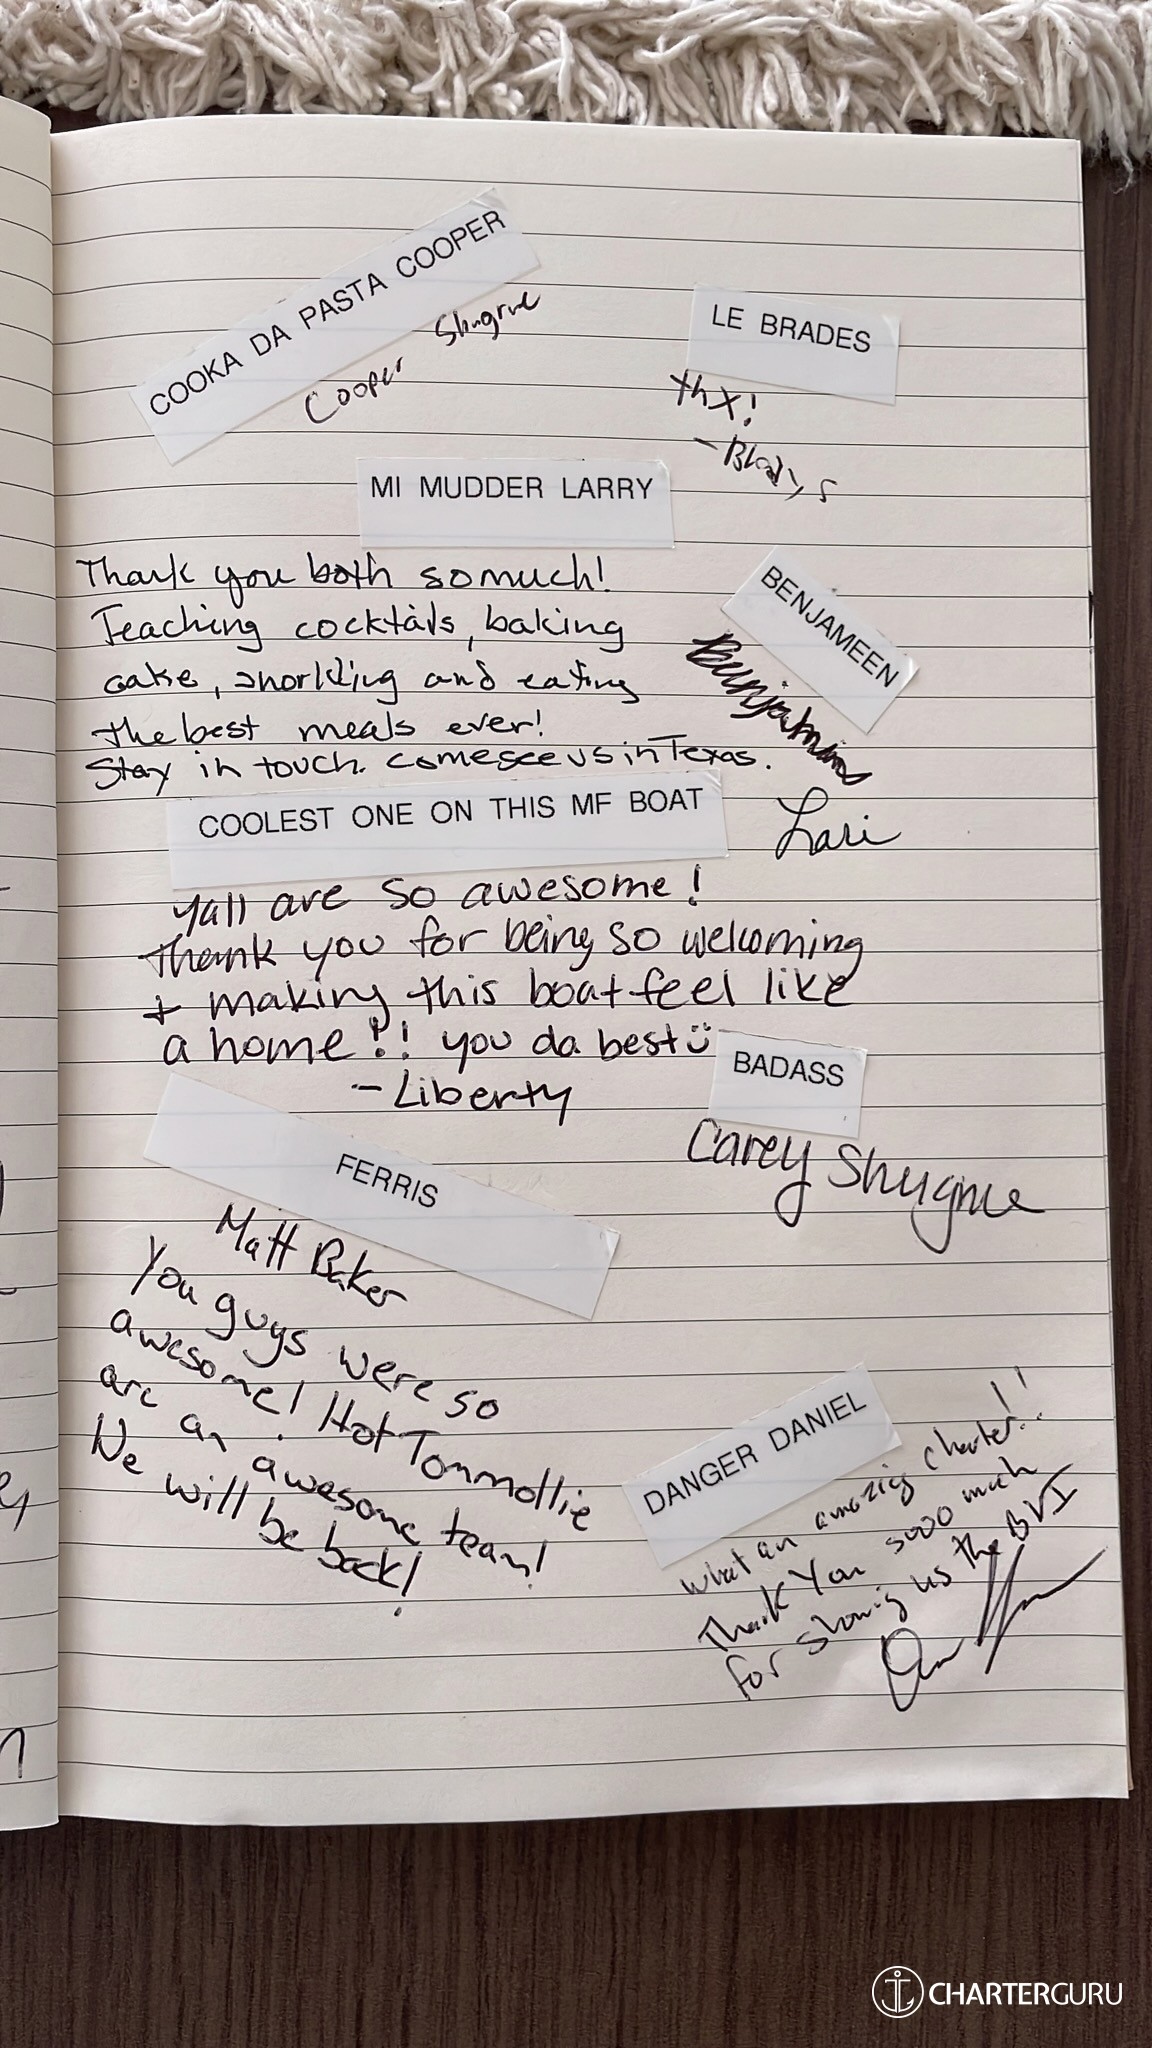 COOKA DA PASTA COOPER
Cooper Shugrue
LE BRADES
thx!
MI MUDDER LARRY
Thank you both so much!
Teaching cocktails, baking
cake, snorkling and eating
the best meals ever!
Stay in touch. Come see us in Texas.
Lari
BENJAMEEN
COOLEST ONE ON THIS MF BOAT
Yall are so awesome!
Thank you for being so welcoming
+ making this boat feel like
a home!! you da best
- Liberty
BADASS
Carey Shugrue
FERRIS
Matt Baker
You guys were so
awesome! Hot Tommollie
are an awesome team!
We will be back!
DANGER DANIEL
what an amazing charter!!
Thank You sooo much
for showing us the BVI
CHARTERGURU